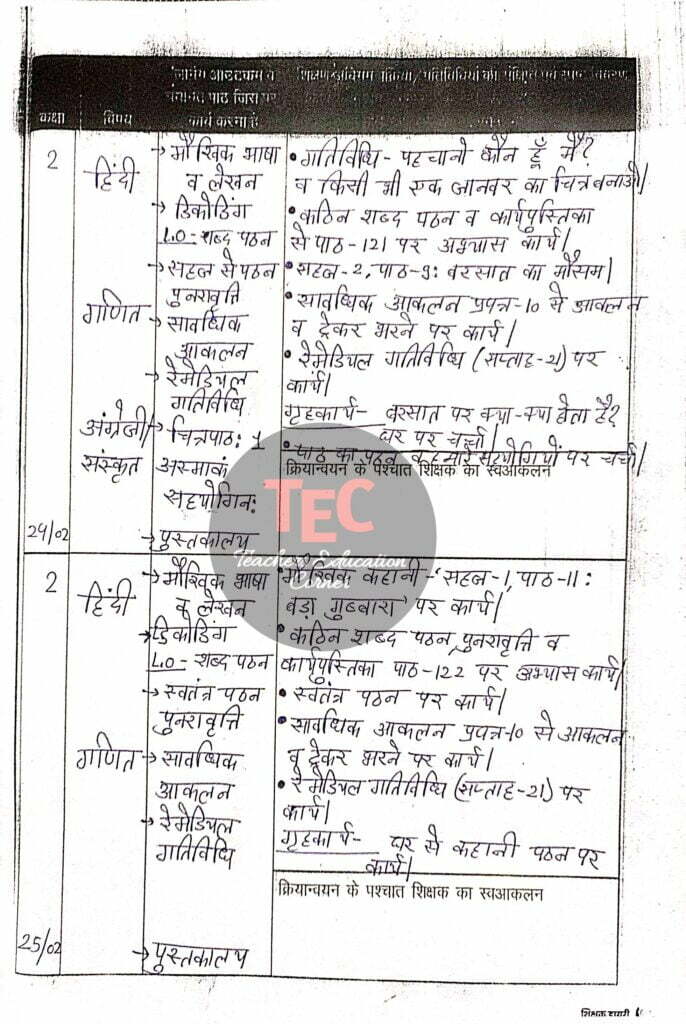 कक्षा
विषय
कार्य करना है
2
हिंदी
→ मौखिक भाषा
व लेखन
→ डिकोडिंग
LO - शब्द पठन
→ सहल से पठन
पुनरावृत्ति
गणित
→ सावधिक
आकलन
→ रेमेडियल
गतिविधि
अंग्रेजी/
संस्कृत
→ चित्रपाठ: 1
अस्माकं
सहयोगिन:
→ पुस्तकालय
24/02
• गतिविधि - पहचानो कौन हूँ मैं?
व किसी भी एक जानवर का चित्र बनाओ|
• कठिन शब्द पठन व कार्यपुस्तिका
से पाठ-121 पर अभ्यास कार्य|
• सहल-2, पाठ-9: बरसात का मौसम|
• सावधिक आकलन प्रपत्र-10 से आकलन
व ट्रेकर भरने पर कार्य|
• रेमेडियल गतिविधि (सप्ताह-21) पर
कार्य|
गृहकार्य- बरसात पर क्या-क्या होता है?
घर पर चर्चा|
• पाठ का पठन व हमारे सहयोगियों पर चर्चा|
क्रियान्वयन के पश्चात शिक्षक का स्वआकलन
TEC
Teacher Education
Corner
2
हिंदी
→ मौखिक भाषा
व लेखन
→ डिकोडिंग
LO - शब्द पठन
→ स्वतंत्र पठन
पुनरावृत्ति
गणित
→ सावधिक
आकलन
→ रेमेडियल
गतिविधि
→ पुस्तकालय
25/02
मौखिक कहानी - 'सहल-1, पाठ-11:
बड़ा गुब्बारा' पर कार्य|
• कठिन शब्द पठन, पुनरावृत्ति व
कार्यपुस्तिका पाठ-122 पर अभ्यास कार्य|
• स्वतंत्र पठन पर कार्य|
• सावधिक आकलन प्रपत्र-10 से आकलन
व ट्रेकर भरने पर कार्य|
• रेमेडियल गतिविधि (सप्ताह-21) पर
कार्य|
गृहकार्य- घर से कहानी पठन पर
कार्य|
क्रियान्वयन के पश्चात शिक्षक का स्वआकलन
शिक्षक डायरी